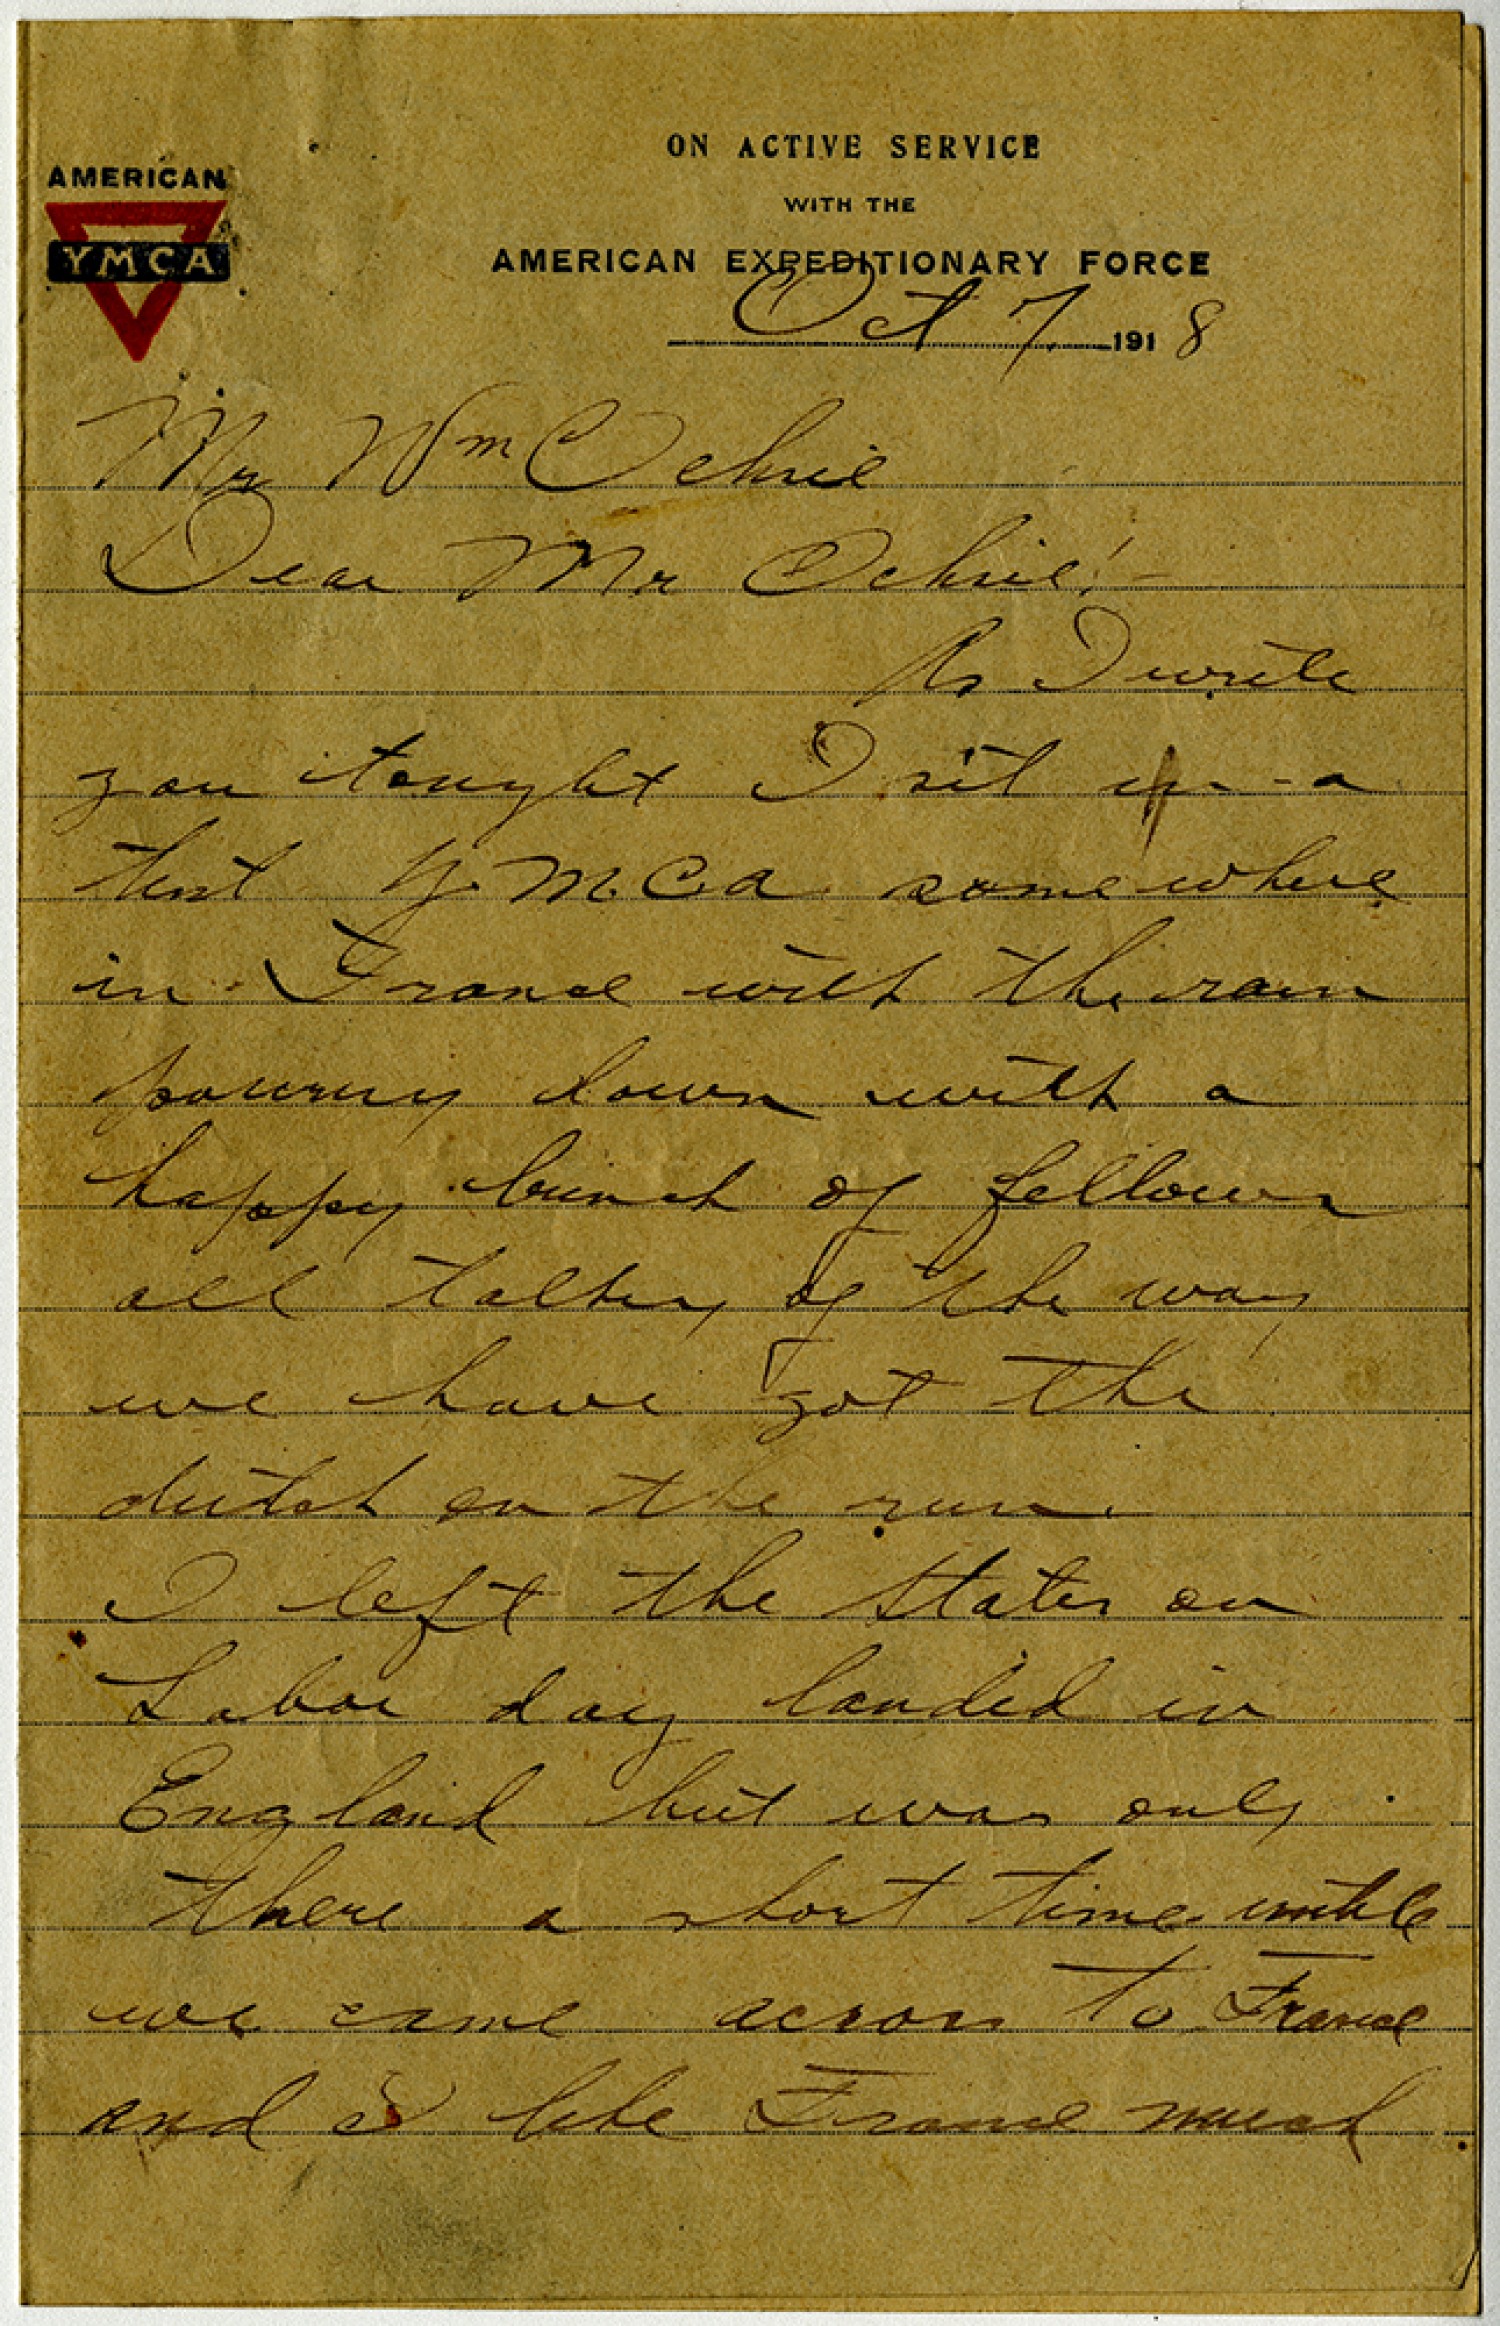 ON ACTIVE SERVICE
WITH THE
AMERICAN EXPEDITIONARY FORCE
AMERICAN
YMCA
Oct 7 1918
Mr Wm Ochse
Dear Mr Ochse!-
As I write
you tonight I sit in a
tent Y.M.C.A. somewhere
in France with the rain
pouring down with a
happy bunch of fellows
all talking of the way
we have got the
dutch on the run.
I left the States on
Labor day landed in
England but was only
there a short time untill
we came across to France
and I like France much